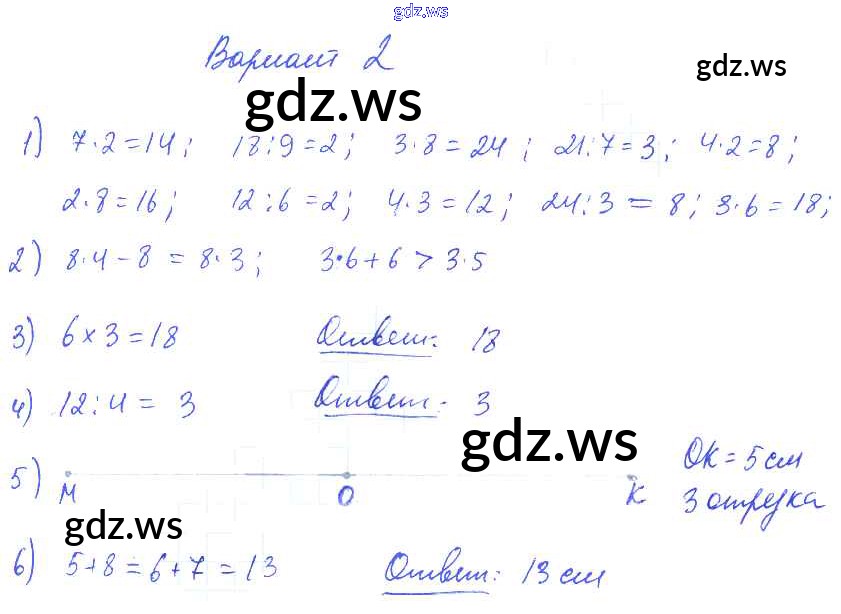 gdz.ws
Вариант 2
gdz.ws
gdz.ws
1) 7·2=14; 18:9=2; 3·8=24; 21:7=3; 4·2=8;
2·8=16; 12:6=2; 4·3=12; 24:3=8; 3·6=18;
2) 8·4-8=8·3; 3·6+6>3·5
3) 6×3=18 Ответ: 18
4) 12:4=3 Ответ: 3
gdz.ws
5) М О К ОК=5см
3 отрезка
gdz.ws
6) 5+8=6+7=13 Ответ: 13 см